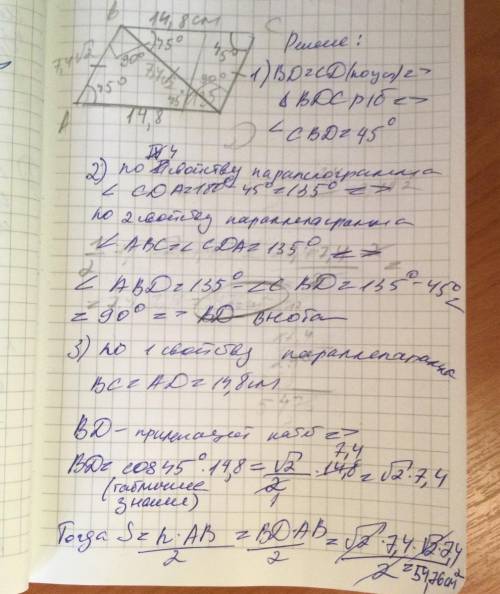 B 14,8 см C
7,4√2 90° 45° 45° 90°
45°
A 14,8 D
Решение:
1) BD=CD (по усл) =>
Δ BDC р/б =>
∠ CBD = 45°
2) по 4 свойству параллелограмма
∠ CDA = 180° - 45° = 135° =>
по 2 свойству параллелограмма
∠ ABC = ∠ CDA = 135° =>
∠ ABD = 135° - ∠ C BD = 135° - 45° =
= 90° => BD высота
3) по 1 свойству параллелограмма
BC = AD = 14,8 см
BD - прилежащий катет =>
BD = cos 45° · 14,8 = √2/2 · 14,8 = √2 · 7,4
7,4
1
(табличное
значние)
Тогда S = h · AB/2 = BD·AB/2 = √2 · 7,4 · √2 · 7,4/2 = 54,76 см²